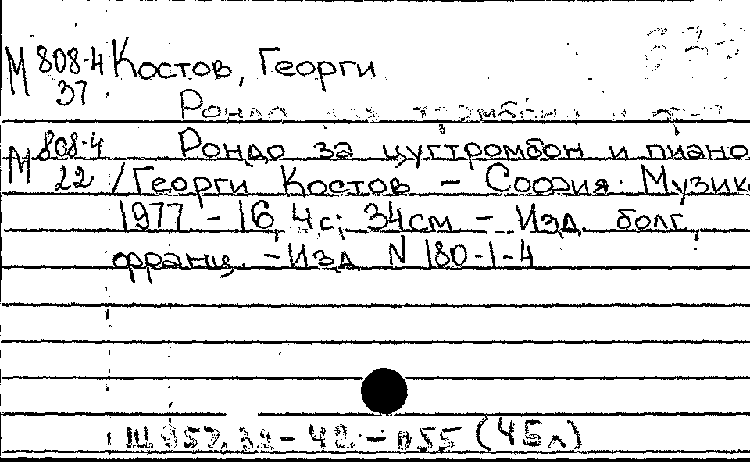 М 808-4 Костов, Георги
37
Рондо за тромбон и
М 808-4 Рондо за цугтромбон и пиано
22 /Георги Костов – София: Музик
1977 – 16, 4с; 34см – Изд. болг,
франц. – Изд N 180-1-4
Щ 957.32-42-055 (45л)